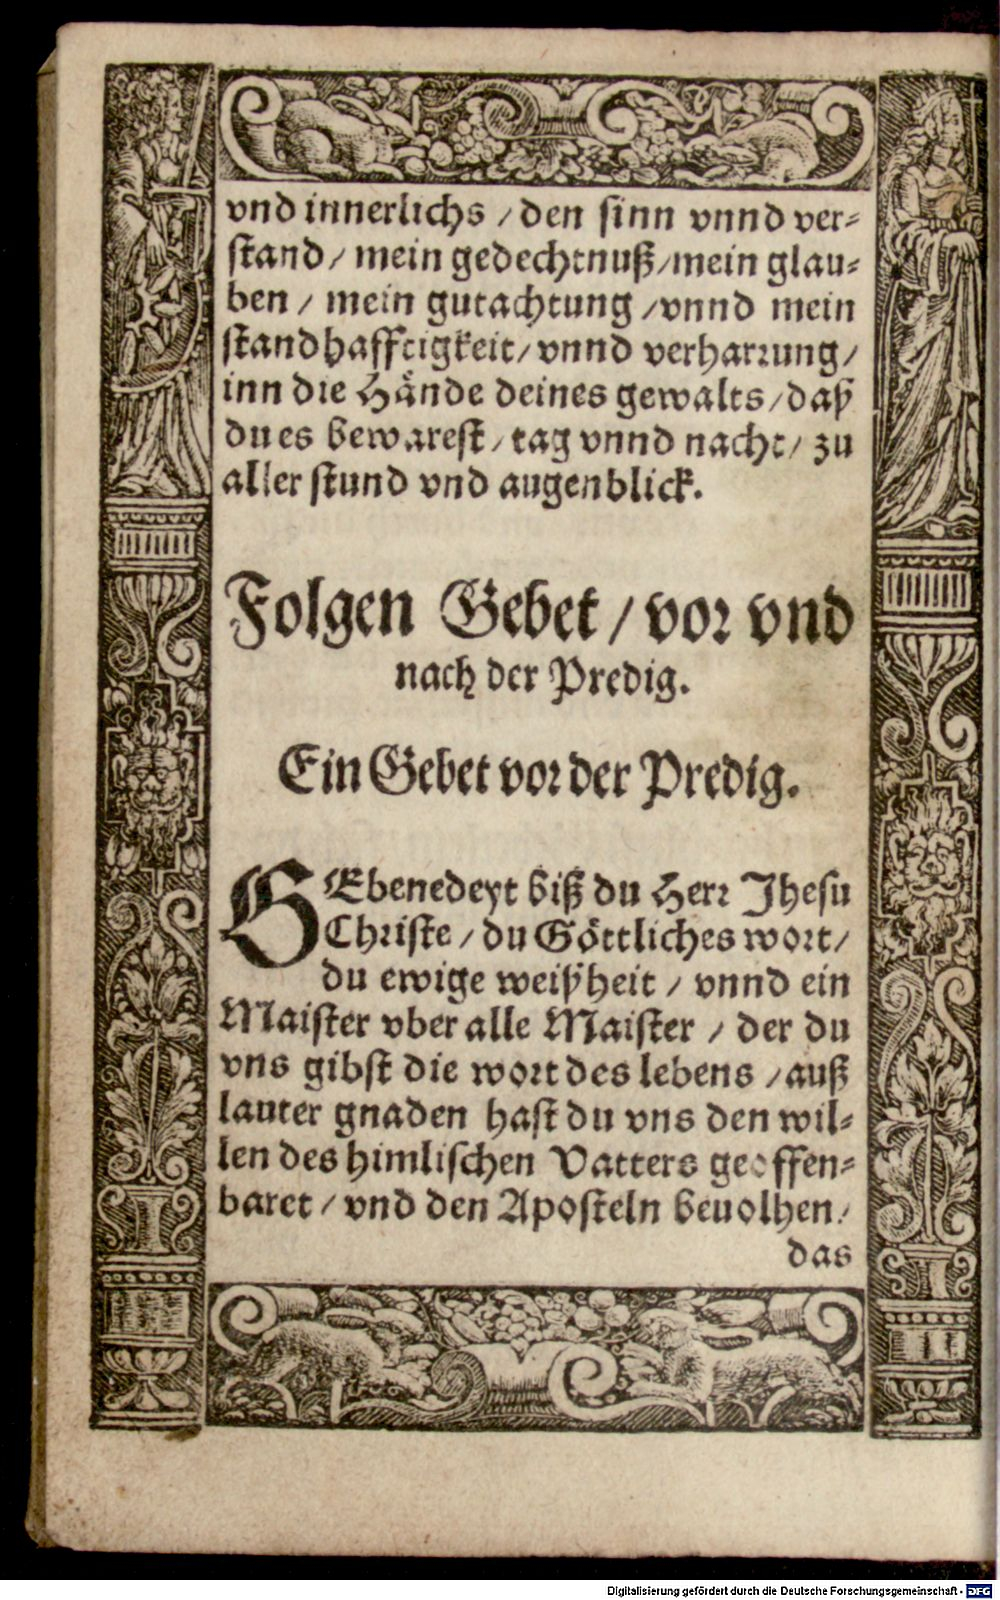 vnd innerlichs / den sinn vnnd ver-
stand / mein gedechtnuß / mein glau-
ben / mein gutachtung / vnnd mein
standhafftigkeit / vnnd verharrung /
inn die Hände deines gewalts / daß
du es bewarest / tag vnnd nacht / zu
aller stund vnd augenblick.
Folgen Gebet / vor vnd
nach der Predig.
Ein Gebet vor der Predig.
GEbenedeyt biß du Herr Jhesu
Christe / du Göttliches wort /
du ewige weißheit / vnnd ein
Maister vber alle Maister / der du
vns gibst die wort des lebens / auß
lauter gnaden hast du vns den wil-
len des himlischen Vatters geoffen-
baret / vnd den Aposteln beuolhen /
das
Digitalisierung gefördert durch die Deutsche Forschungsgemeinschaft - DFG